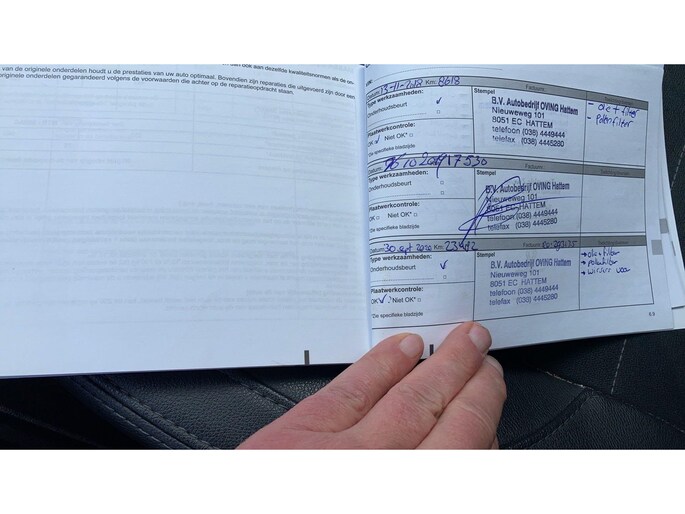 van de originele onderdelen houdt u de prestaties van uw auto optimaal. Bovendien zijn reparaties die uitgevoerd zijn door een
originele onderdelen gegarandeerd volgens de voorwaarden die achter op de reparatieopdracht staan.
Datum: 13-11-2018 Km: 8618
Factuurnr.
Type werkzaamheden:
Onderhoudsbeurt ✓
Plaatwerkcontrole:
OK ✓ Niet OK* □
*Zie specifieke bladzijde
Stempel
B.V. Autobedrijf OVING Hattem
Nieuweweg 101
8051 EC HATTEM
telefoon (038) 4449444
telefax (038) 4445280
- olie + filter
- Pollenfilter
Datum: 10 2019 17530
Factuurnr.
Type werkzaamheden:
Onderhoudsbeurt □
Plaatwerkcontrole:
OK □ Niet OK* □
*Zie specifieke bladzijde
Stempel
B.V. Autobedrijf OVING Hattem
Nieuweweg 101
8051 EC HATTEM
telefoon (038) 4449444
telefax (038) 4445280
Datum: 30 sept 2020 Km:
Factuurnr.
Type werkzaamheden:
Onderhoudsbeurt ✓
Plaatwerkcontrole:
OK ✓ Niet OK* □
*Zie specifieke bladzijde
Stempel
B.V. Autobedrijf OVING Hattem
Nieuweweg 101
8051 EC HATTEM
telefoon (038) 4449444
telefax (038) 4445280
→ oliefilter
→ Pollenfilter
→ wissers voor